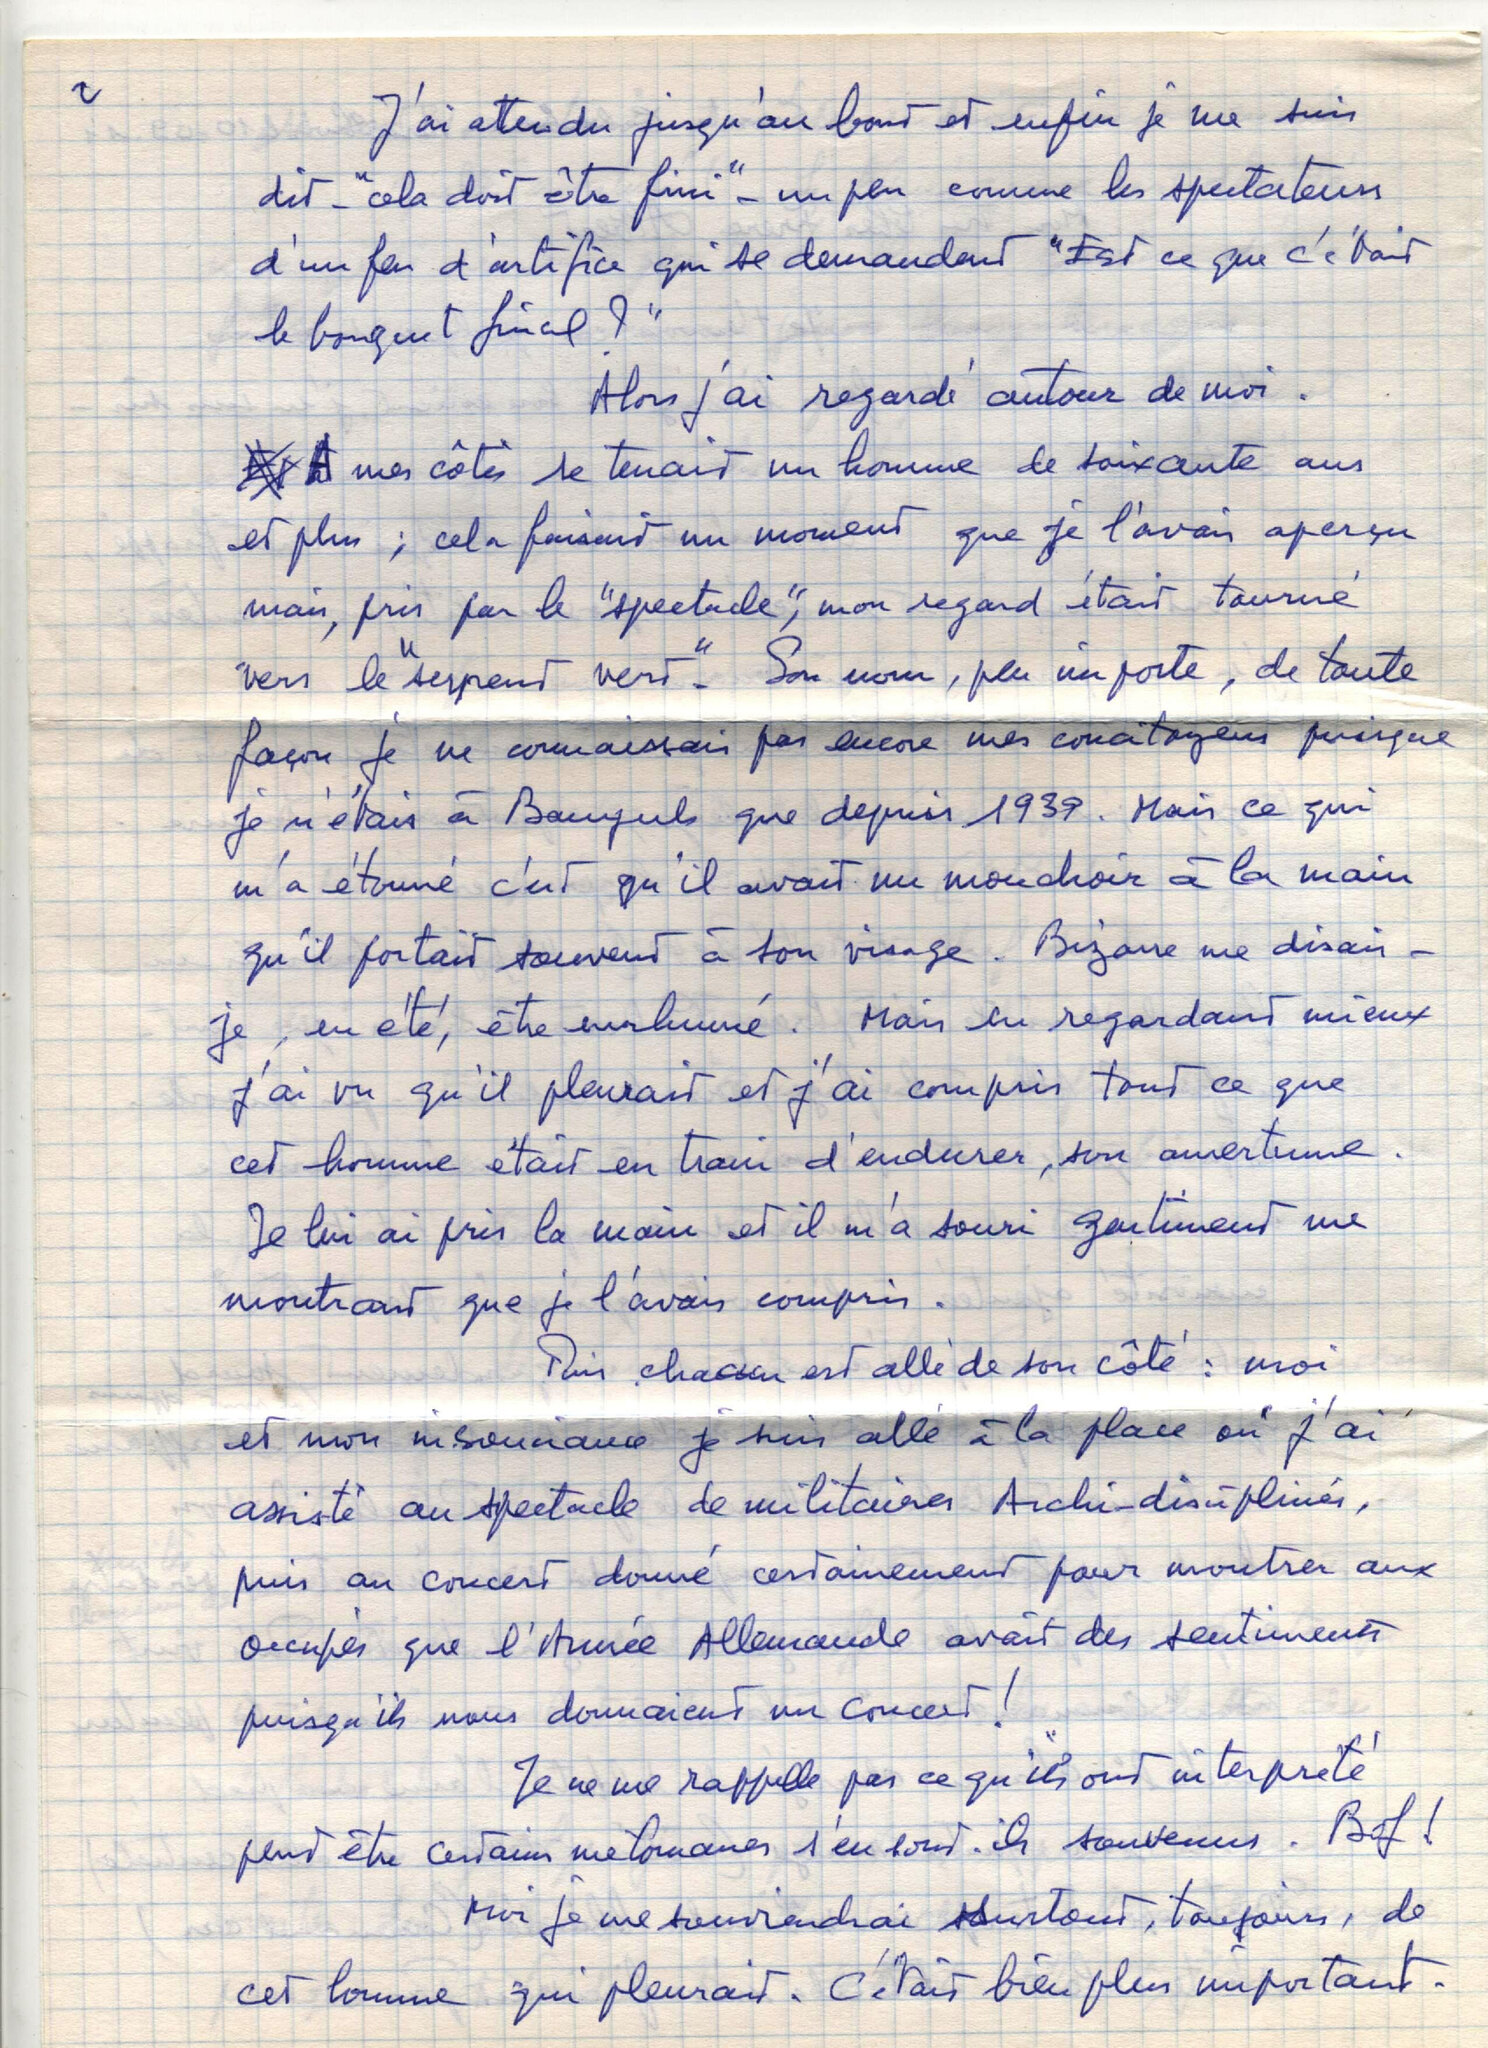 2
J'ai attendu jusqu'au bout et enfin je me suis
dit - "cela doit être fini" - un peu comme les spectateurs
d'un feu d'artifice qui se demandent "Est ce que c'était
le bouquet final ?"
Alors j'ai regardé autour de moi.
A mes côtés se tenait un homme de soixante ans
et plus ; cela faisait un moment que je l'avais aperçu
mais, pris par le "spectacle", mon regard était tourné
vers le "serpent vert". Son nom, peu importe, de toute
façon je ne connaissais pas encore mes concitoyens puisque
je n'étais à Banyuls que depuis 1939. Mais ce qui
m'a étonné c'est qu'il avait un mouchoir à la main
qu'il portait souvent à son visage. Bizarre me disais-
je, en été, être enrhumé. Mais en regardant mieux
j'ai vu qu'il pleurait et j'ai compris tout ce que
cet homme était en train d'endurer, son amertume.
Je lui ai pris la main et il m'a souri gentiment me
montrant que je l'avais compris.
Puis chacun est allé de son côté : moi
et mon insouciance je suis allé à la place où j'ai
assisté au spectacle de militaires Archi-disciplinés,
puis au concert donné certainement pour montrer aux
occupés que l'Armée Allemande avait des sentiments
puisqu'ils nous donnaient un concert !
Je ne me rappelle pas ce qu'"ils" ont interprété
peut être certains mélomanes s'en sont-ils souvenus. Bof !
Moi je me souviendrai surtout, toujours, de
cet homme qui pleurait. C'était bien plus important.